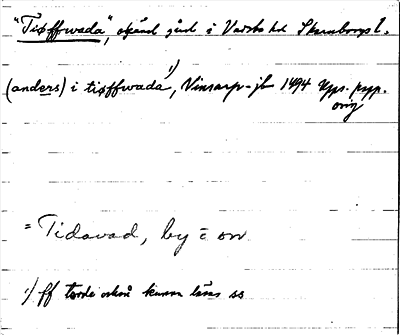 "Tiøffwada", okänd gård i Vadsbo hd Skaraborgs l.
(anders) i tiøffwada 1), Vinsarp-jb 1494 Upps. papp.
orig
= Tidavad, by i
1) ff torde också kunna läsas ss